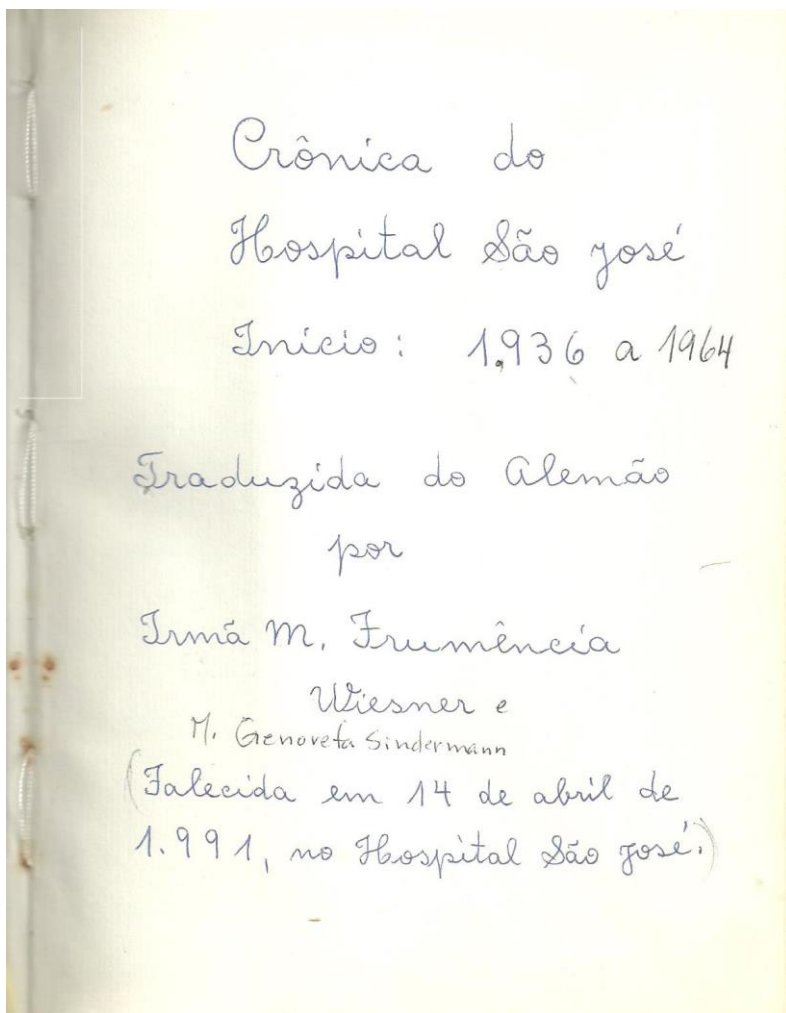 Crônica do
Hospital São José
Início: 1.936 a 1964
Traduzida do Alemão
por
Irmã M. Frumência
Wiesner e
M. Genoveta Sindermann
(Falecida em 14 de abril de
1.991, no Hospital São José.)